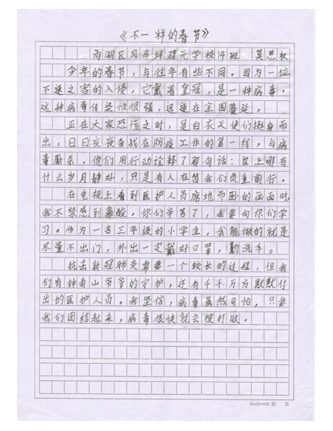 《不一样的春节》
南湖区凤桥镇 学校 班 莫思
今年的春节，与往年有些不同。因为一位
不速之客的入侵，它戴着皇冠，是一种病毒，
这种病毒传染性很强，迅速在全国蔓延。
正在大家恐慌之时，是白衣天使们挺身而
出，日日夜夜奋战在防疫工作的第一线，与病
毒励战。他们用行动诠释了那句话：世上哪有
什么岁月静好，只是有人在替我们负重前行。
在电视上看到医护人员席地而卧的画面时，
我不禁感到 你们辛苦了，我要向你们学
习。作为一名三年级的小学生，我能做的就是
尽量不出门，外出一定戴好口罩，勤洗手。
抗击新冠肺炎需要一个较长的过程，但我
们有钟南山爷爷的守护，还有千千万万默默付
出的医护人员。我坚信，病毒虽然可怕，只要
我们团结起来，病毒很快就会被打败。